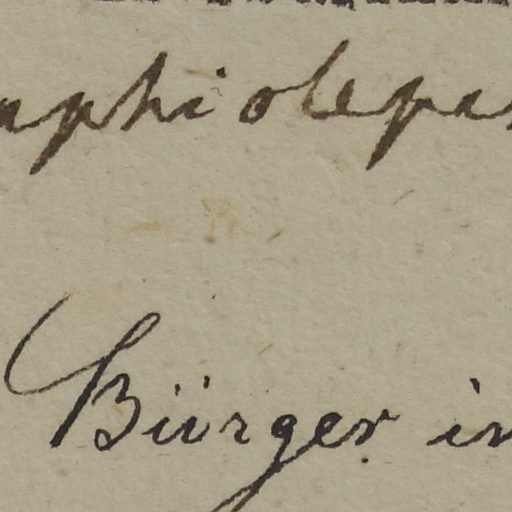 aphiolepis
Bürger in